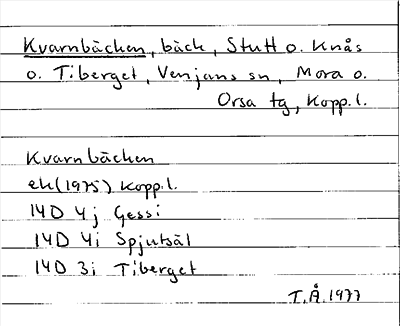 Kvarnbäcken, bäck, Stutt o. Knås
o. Tiberget, Venjans sn, Mora o.
Orsa tg, Kopp.l.
Kvarnbäcken
ek(1975) Kopp.l.
14D 4j Gessi
14D 4i Spjutsäl
14D 3i Tiberget
T.Å.1977